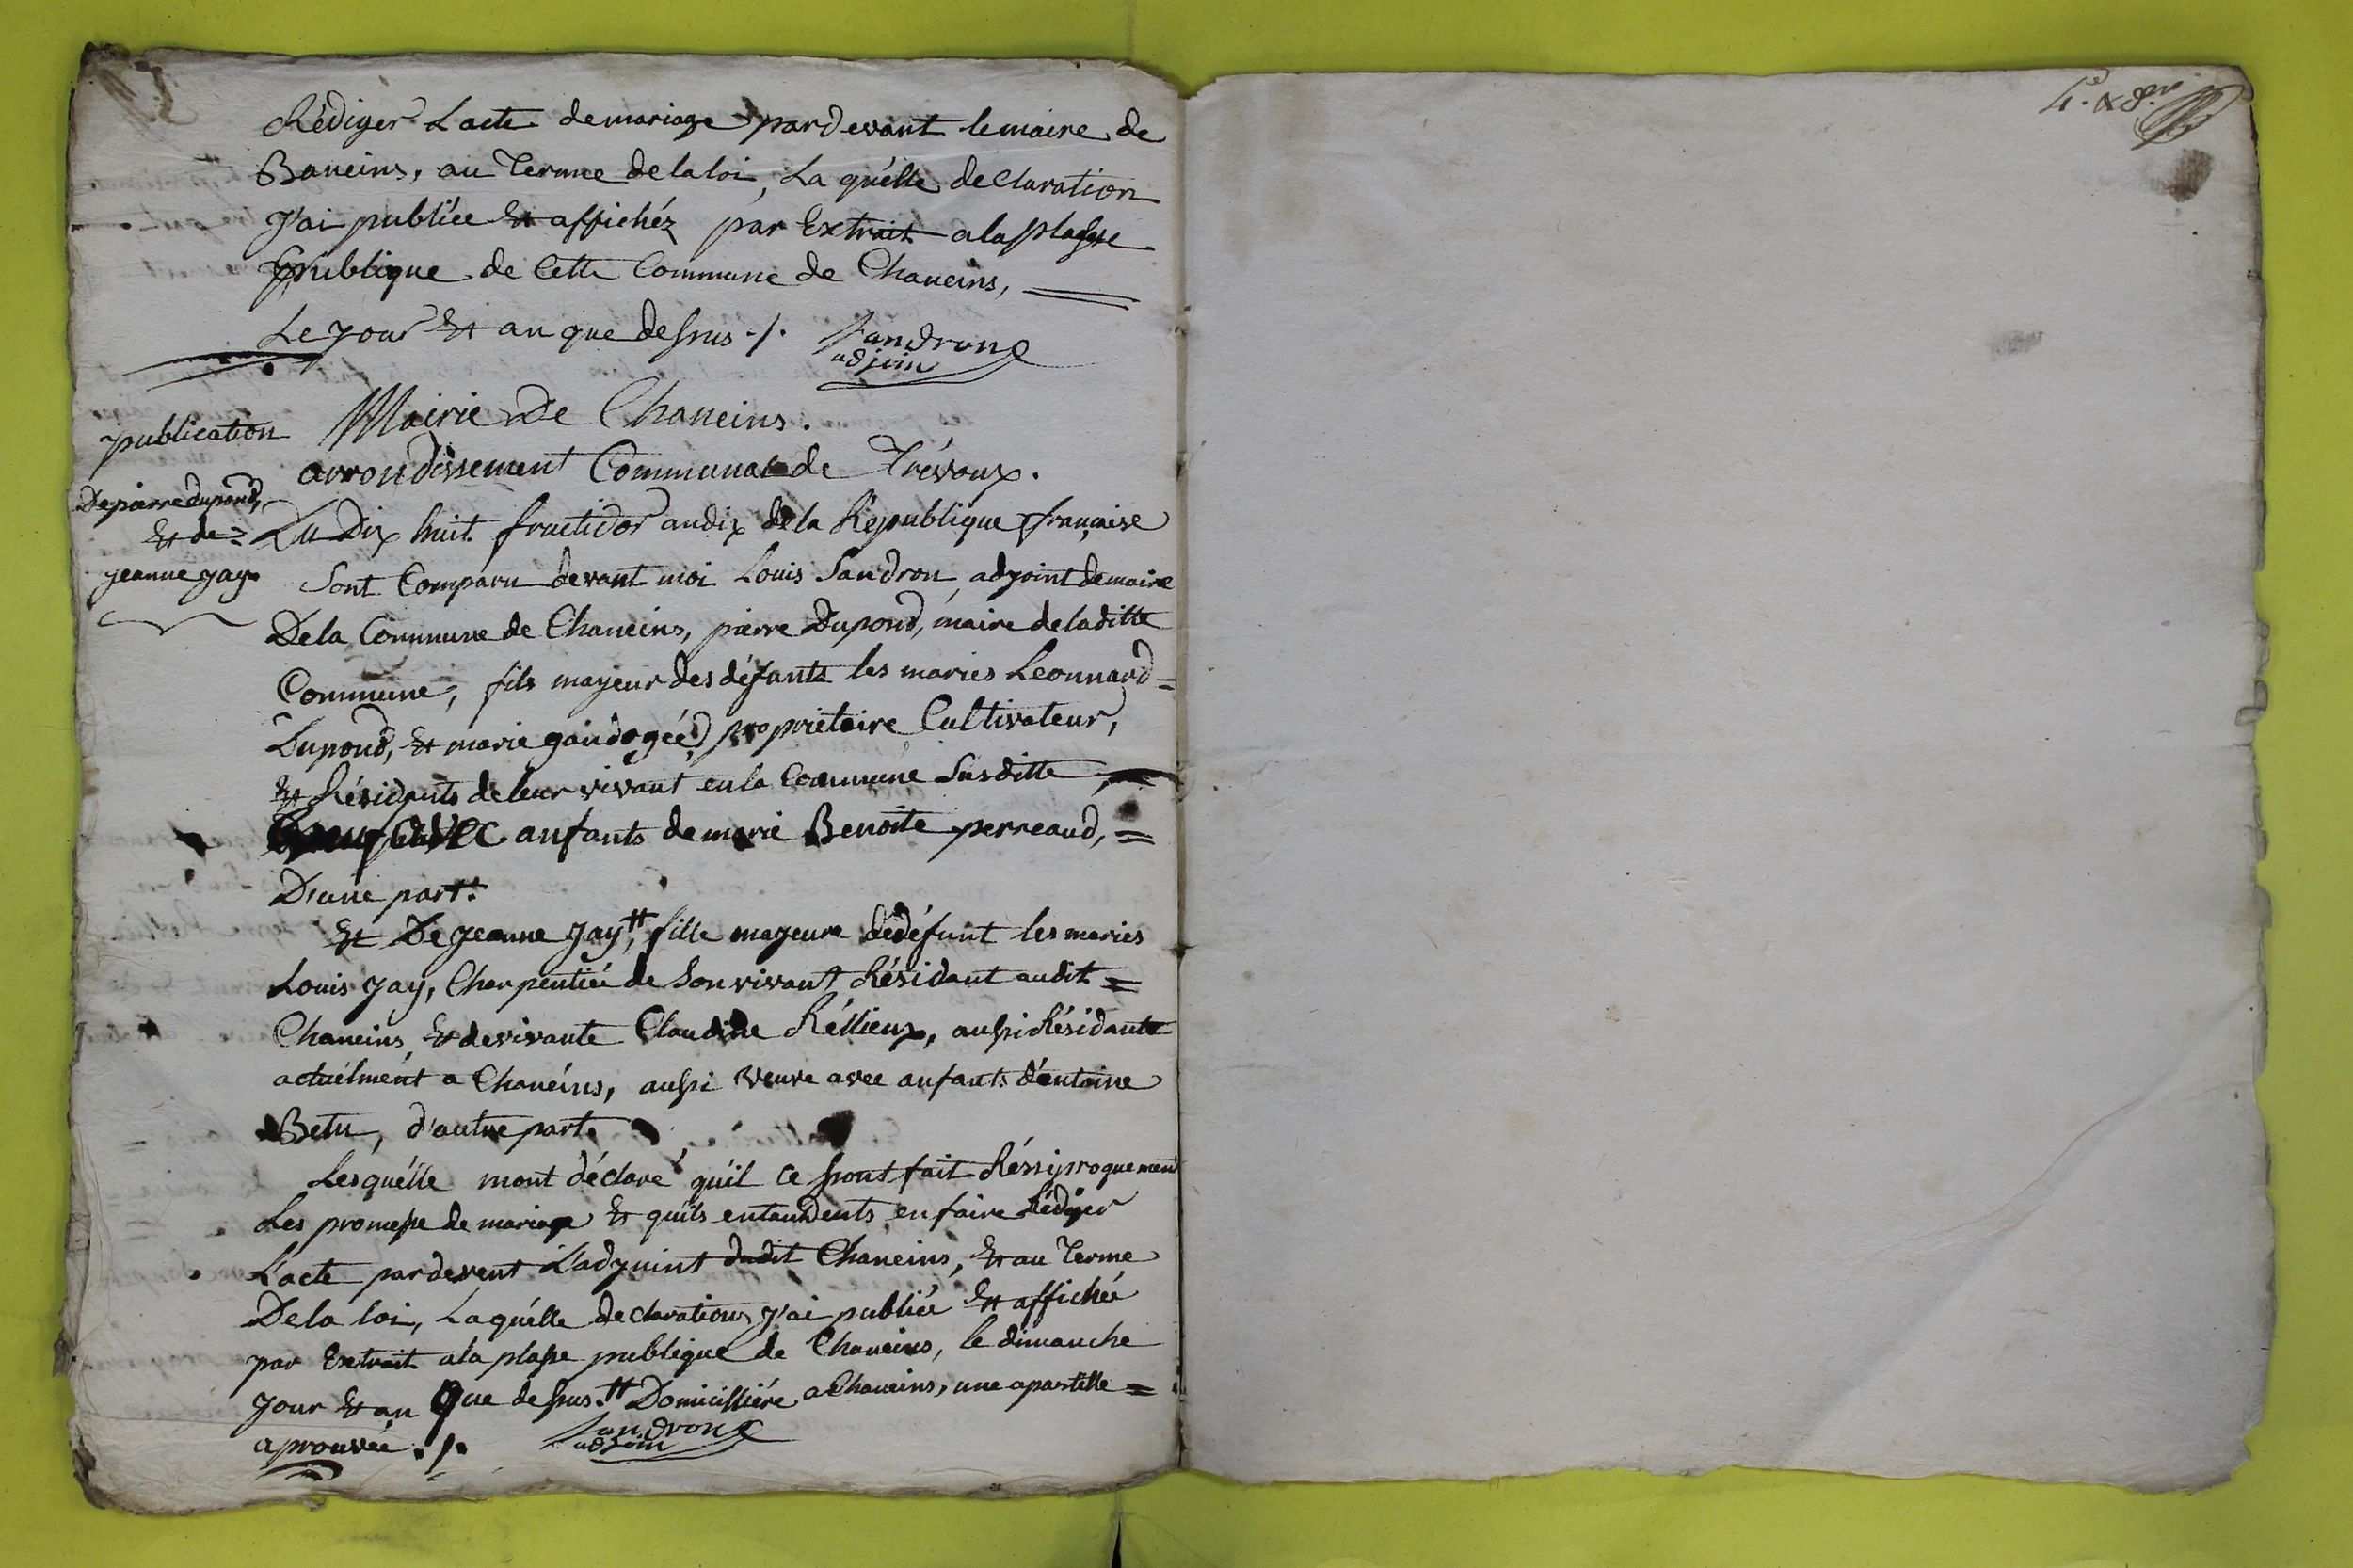 Rédiger Lacte demariage pardevant lemaire de
Baneins, au Terme delaloi, La quélle declaration
J'ai publiée Et affichéz par Extrait alaplasse
publique de Cette Commune de Chaneins,
Le jour Et an que dessus ./. Sandron
adjoin
publication
Depierredupond,
Et de =
jeanne jay
Mairie De Chaneins.
arrondissement Communal de Trévoux.
Lu Dix huit fructidor andix dela Republique française
Sont Comparu devant moi Louis Sandron, adjoint demaire
Dela Commune de Chaneins, pierre Dupond, maire deladitte
Commune, fils mayeur des défants les maries Leonnard =
Dupond, Et marie propriétaire Cultivateur,
Et Résidants de leur vivant enla Commune Susditte,
avec anfants de marie Benoite perreaud, =
D'une part.
Et De jeanne Jay ++, fille mageure dedéfunt les maries
Louis Jay, Charpentiée de Son vivant Résidant audit =
Chaneins, Et devivante Claudine Réllieux, aussi Résidante
actuélmént a Chanéins, aussi veuve avec anfants d'antoine
Betu, d'autre part.
Lesquélle mont déclaré qu'il ce sont fait Réssiproquement
Les promesse de mariage Et qu'ils entandents enfaire Rédiger
L'acte pardevent L'adjuint dudit Chaneins, Et au Terme
Dela loi, Laquélle declaration J'ai publiée Et affichée
par Extrait ala plasse publique de Chaneins, le dimanche
jour Et an Que dessus. ++ Domicilliére a Chaneins, une apastille =
aprouvée ./. Sandron
adjoin